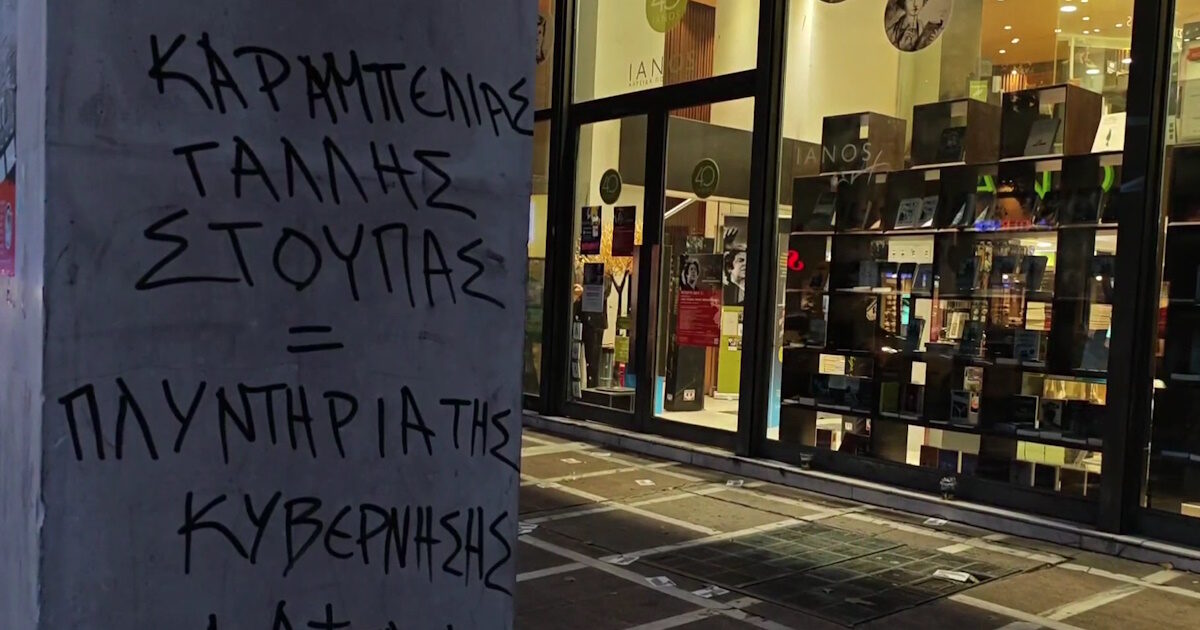 ΚΑΡΑΜΠΕΛΙΑΣ
ΤΑΛΛΗΣ
ΣΤΟΥΠΑΣ
=
ΠΛΥΝΤΗΡΙΑ ΤΗΣ
ΚΥΒΕΡΝΗΣΗΣ
40
IANOS
IANOS
40
40